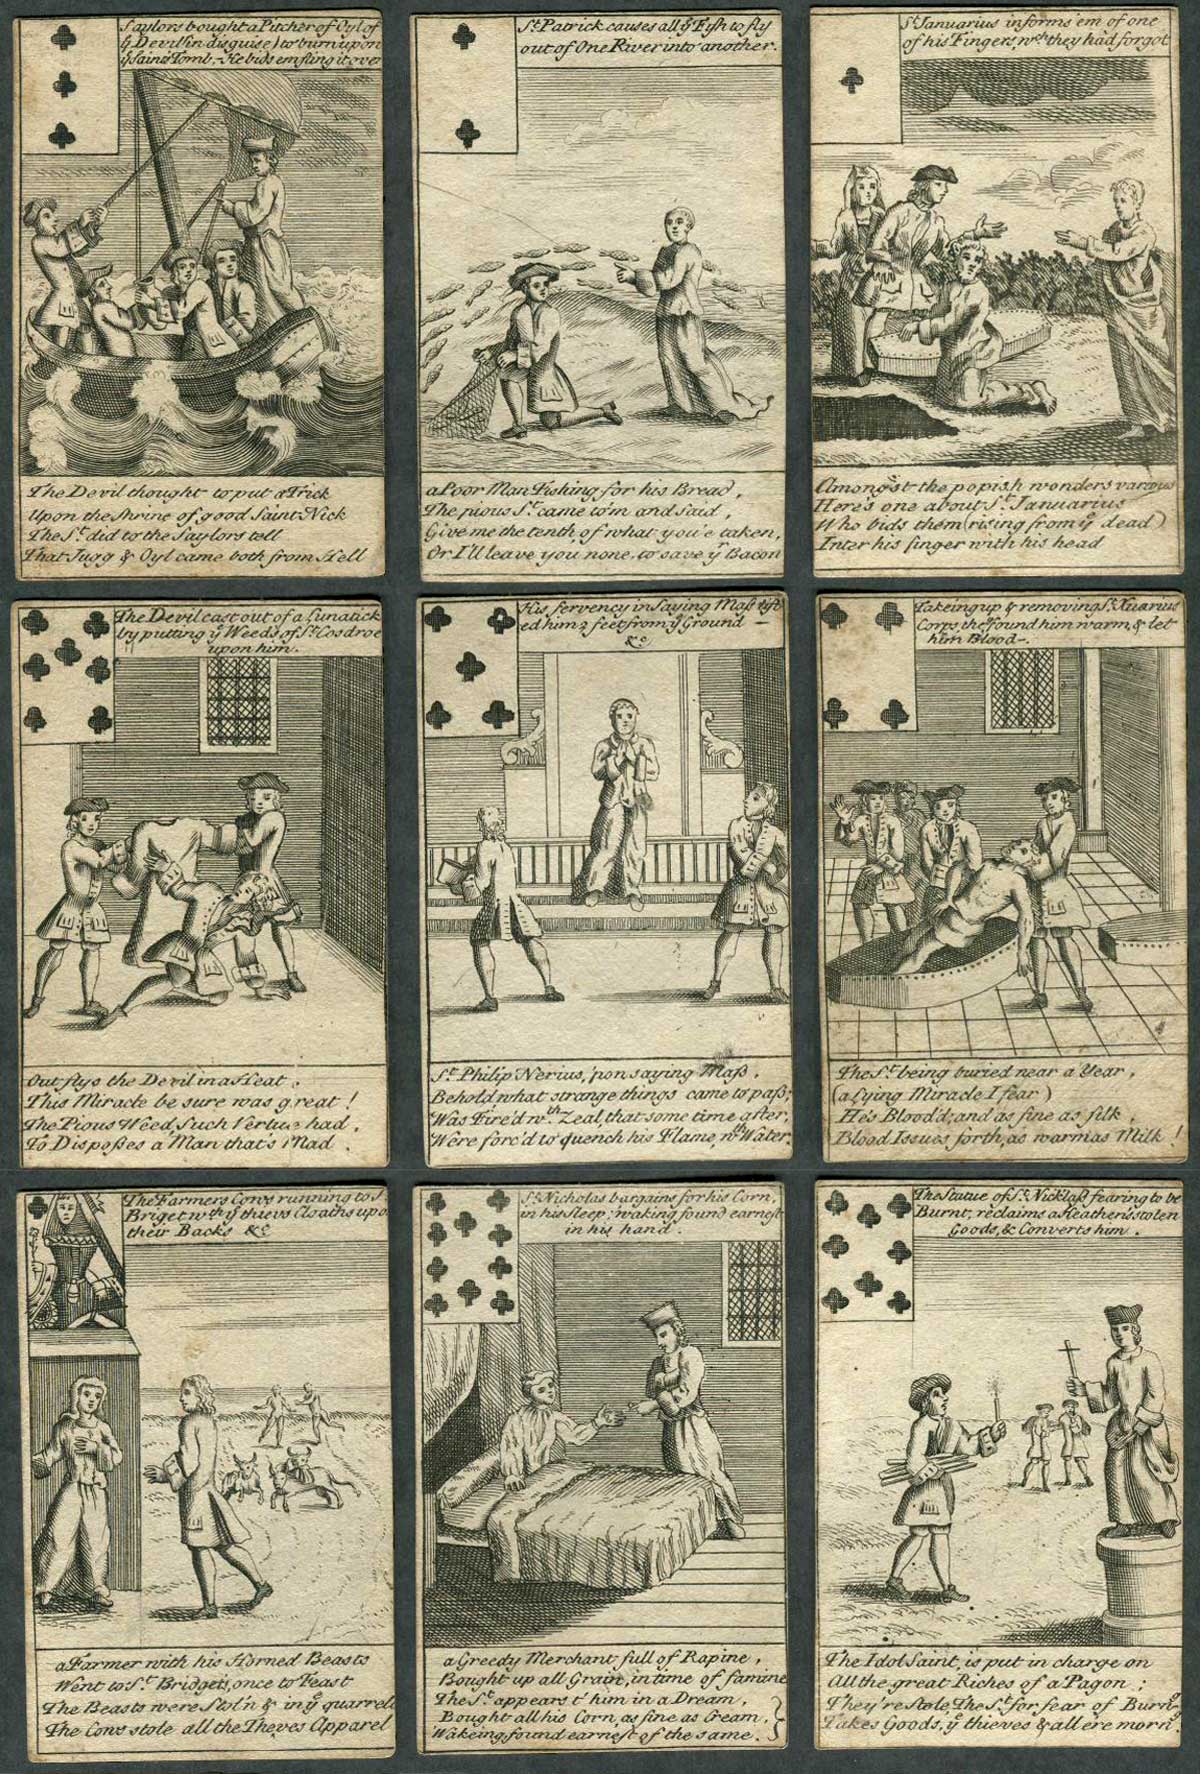 Saylors bought a Pitcher of Oyl of
yͤ Devil (in disguise) to burn upon
yͤ Saints Tomb, He bids em fling it over
The Devil thought to put a Trick
Upon the Shrine of good Saint Nick
The Sᵗ. did to the Saylors tell
That Jugg & Oyl came both from Hell
Sᵗ. Patrick causes all yͤ Fish to fly
out of One River into another.
a Poor Man Fishing for his Bread,
The pious Sᵗ. came to'm and said,
Give me the tenth of what you'e taken,
Or I'll leave you none, to save yʳ Bacon
Sᵗ. Januarius informs 'em of one
of his Fingers, wᶜʰ they had forgot
Amongst the popish wonders various
Here's one about Sᵗ. Januarius
Who bids them (rising from yͤ dead)
Inter his finger with his head
The Devil cast out of a Lunatick
by putting yͤ Weeds of Sᵗ. Cosdroe
upon him.
Out flys the Devil in a Heat,
This Miracle be sure was great!
The Pious Weed Such Vertue had,
To Dispoßes a Man that's Mad.
His fervency in Saying Maß lift
ed him 2 feet from yͤ Ground —
&c
Sᵗ. Philip Nerius, 'pon saying Maß,
Behold what strange things came to paß;
Was Fire'd wᵗʰ Zeal, that some time after,
Were forc'd to quench his Flame, wᵗʰ Water.
Takeing up & removing Sᵗ. Nuarius
Corps they found him warm, & let
him Blood-.
The Sᵗ. being buried near a Year,
(a lying Miracle I fear)
He's Blooded; and as fine as silk,
Blood Issues forth, as warm as Milk!
The Farmers Cows running to S.
Briget wᵗʰ yͤ thievs Cloaths upo
their Backs &c
a Farmer with his Horned Beasts
Went to Sᵗ. Bridgets, once to Feast
The Beasts were Stol'n & in yͤ quarrel
The Cows stole all the Theves Apparel
Sᵗ. Nicholas bargains for his Corn,
in his Sleep; waking found earnest
in his hand.
a Greedy Merchant full of Rapine,
Bought up all Grain, in time of famine
The Sᵗ. appears t' him in a Dream,
Bought all his Corn, as fine as Cream,
Wakeing, found earnest of the same.
The Statue of Sᵗ. Nicklaß fearing to be
Burnt, reclaims a Heathen's stolen
Goods, & Converts him.
The Idol Saint, is put in charge on
All the great Riches of a Pagon;
They're Stole, The Sᵗ. for fear of Burng
Takes Goods, yͤ thieves & all ere morng.